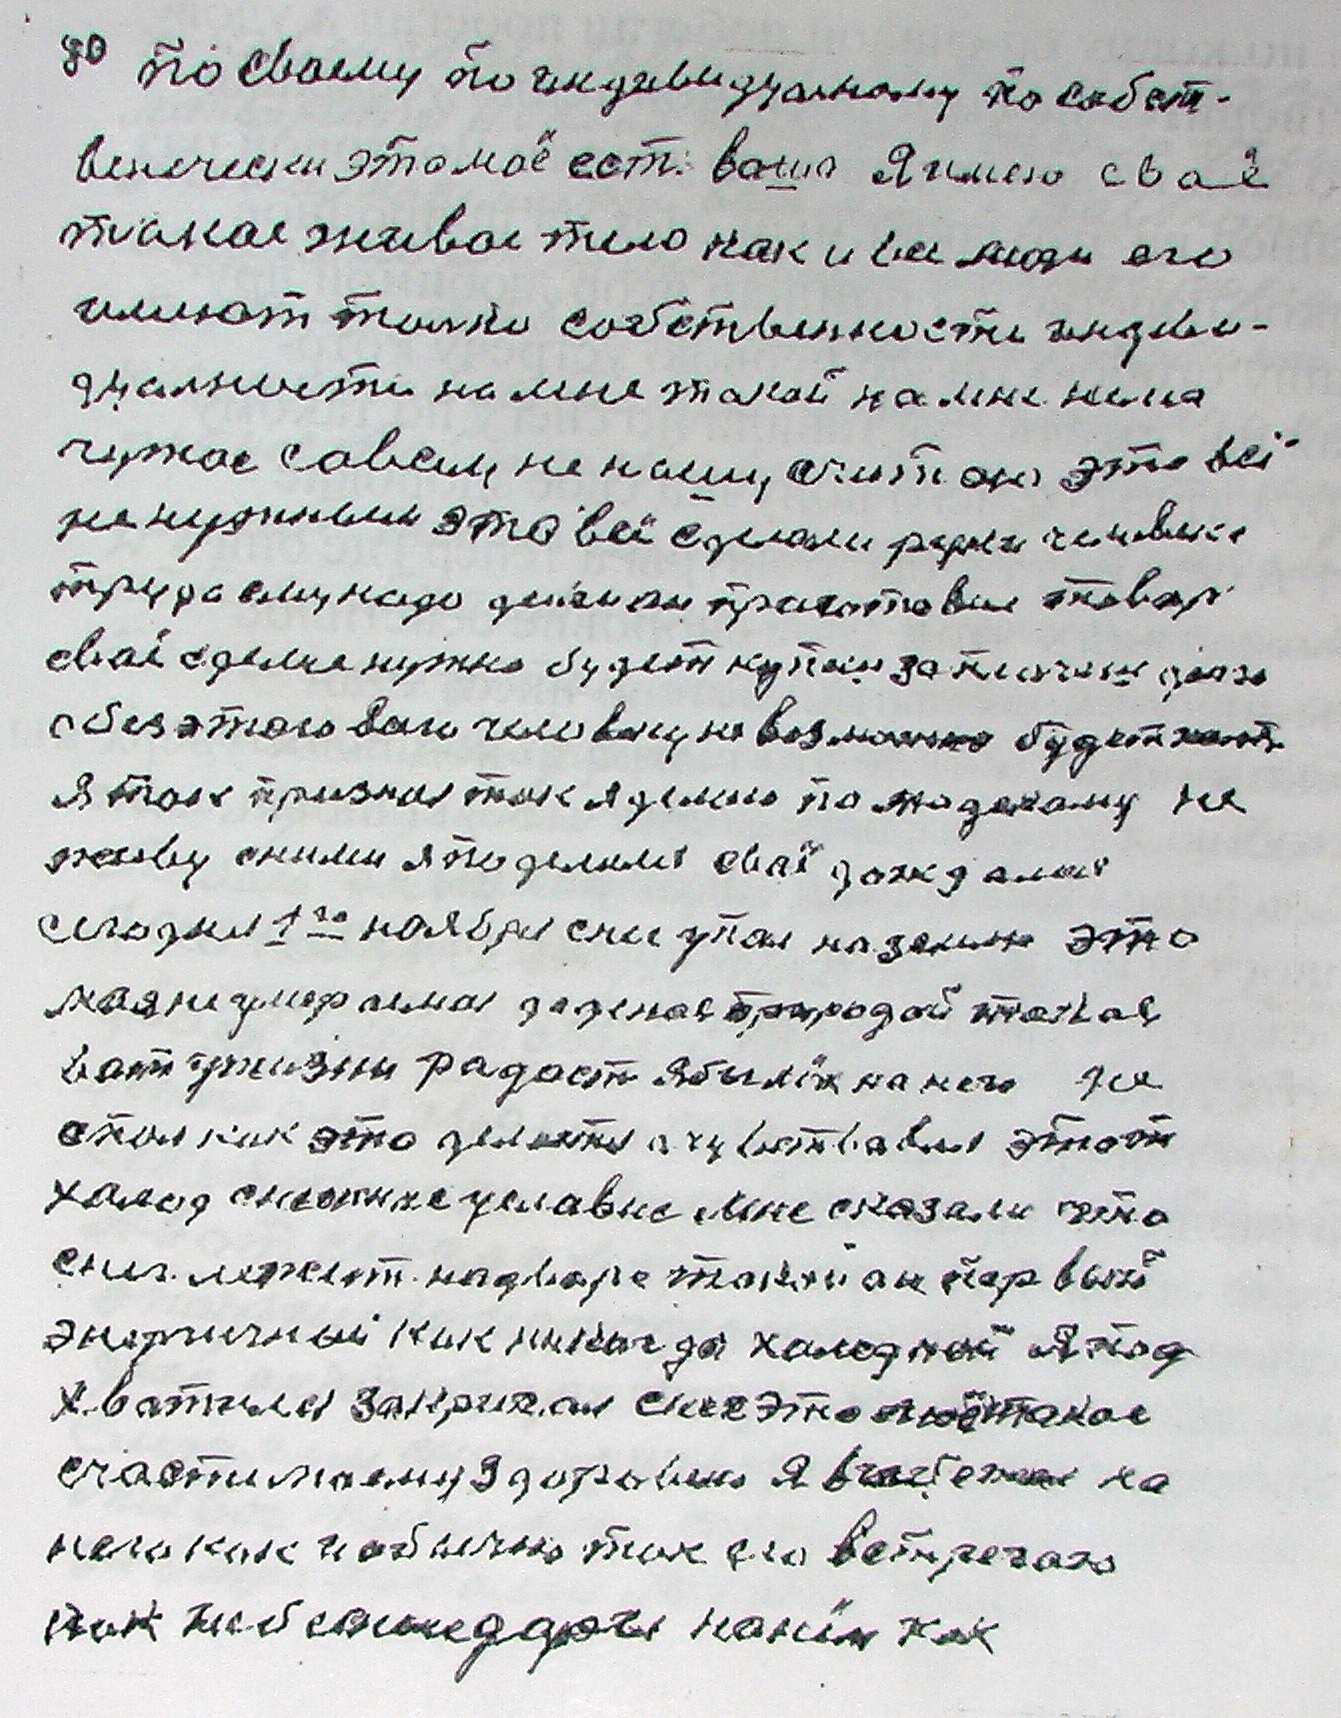 80 по своему по индивидуалному по собст-
венически этамоё ест. ваша Я имею сваё
такое живое тело как и все люди его
имеют толко собственности индиви-
дуалности на мне такой на мне нима
чужое савсем не нашу считаю это всё
ненужным это всё сделали ради человека
труда ему надо денги приготовит товар
сваё сделие нужно будет купит заплатит
а без этого вам человеку не возможно будет
Я так признал так я делаю по людскому не
живу сними я поделился сваё дождался
сегодня 1го ноября снег упал на землю это
мая не умираемая даденая природой такая
вот у жизни радост я был их на него не
спал как это делается а чувствавал этот
халод снежнае условие мне сказали что
снег лежит надваре такой ан первый
энергичный как никагда халодный Я под
хватился закричал снег это моё такое
счастие маему здоровию Я выбежал на
него как и обычно так его встречаю
как нибудь нанём как